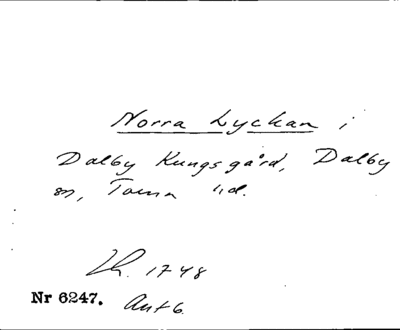 Norra Lyckan i
Dalby Kungsgård, Dalby
sn, Torna hd.
Lh. 1748
Nr 6247. Akt 6